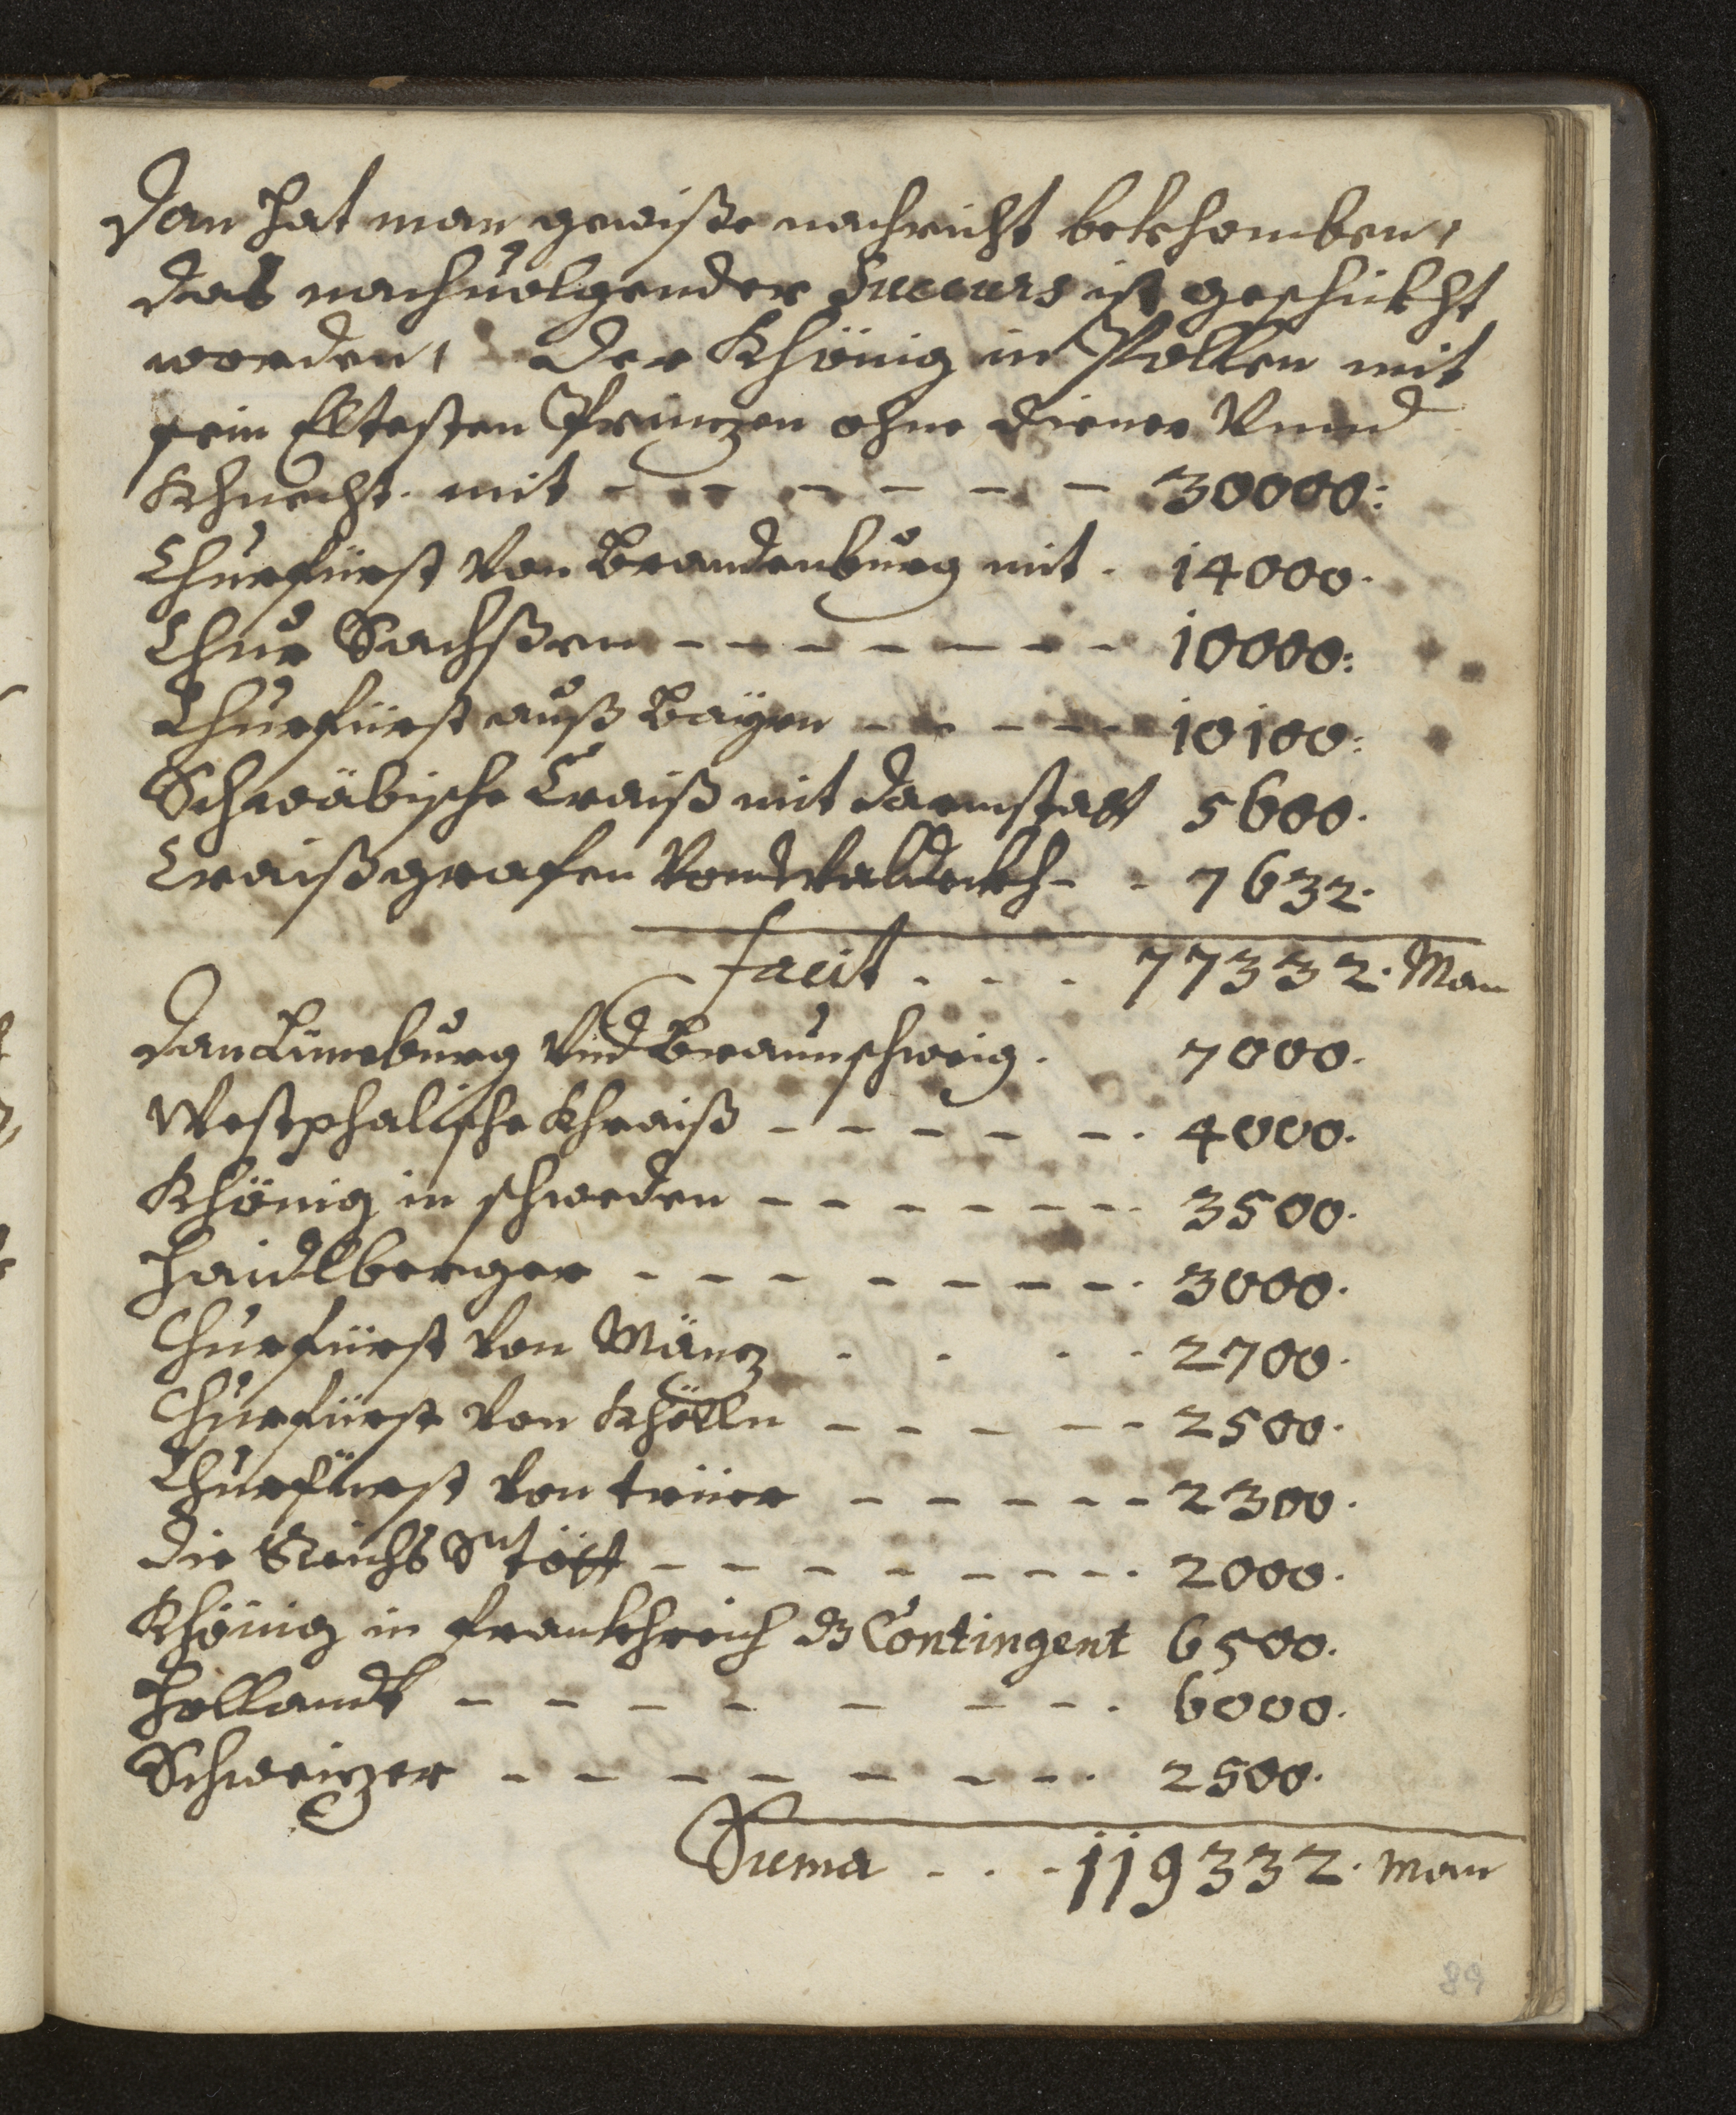 Dan hat man gewiße nachricht bekhomben,
das nachuolgender Succurs ist geschükht
worden, Der Khönig in Pollen mit
sein Eltesten Prinzen ohne diener Vnnd
Khnecht. mit - - - - - - 30000:
Churfürst Von Brandenburg mit. 14000.
Chur Sachßen - - - - - - - 10000:
Churfürst auß Bayrn - - - - - 10100:
Schwäbische Craiß mit darmstatt 5600.
Craißgrafen Von Waldekh - - 7632.
facit . . . 77332. Man
Dan Lüneburg Vnd Braunschweig. 7000.
Westphalische Khraiß - - - - - - . 4000.
Khönig in schweden - - - - - - - 3500.
Haidlberger - - - - - - - . 3000.
Churfürst Von Mäntz . . . . 2700.
Churfürst Von Khölln - - - - - 2500.
Churfürst Von trüer - - - - - 2300.
die Reichs Stött - - - - - - - . 2000.
Khönig in frankhreich dz Contingent 6500.
Hollandt - - - - - - - . 6000.
Schweitzer - - - - - - - . 2500.
Suma . . . 119332. Man
89